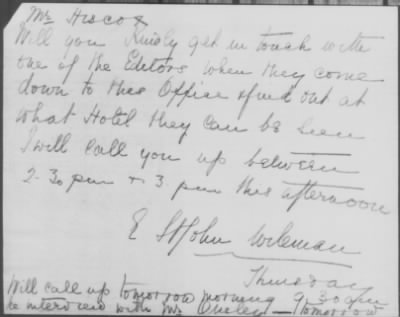 Mr Hiscox
Will you Kindly get in touch with
one of the Editors when they come
down to this Office & find out at
what Hotel they can be seen
I will call you up between
2-30 pm & 3 pm this afternoon
E St John Wileman
Thursday
Will call up tomorrow morning 9.30 am
be interview with Mr tomorrow